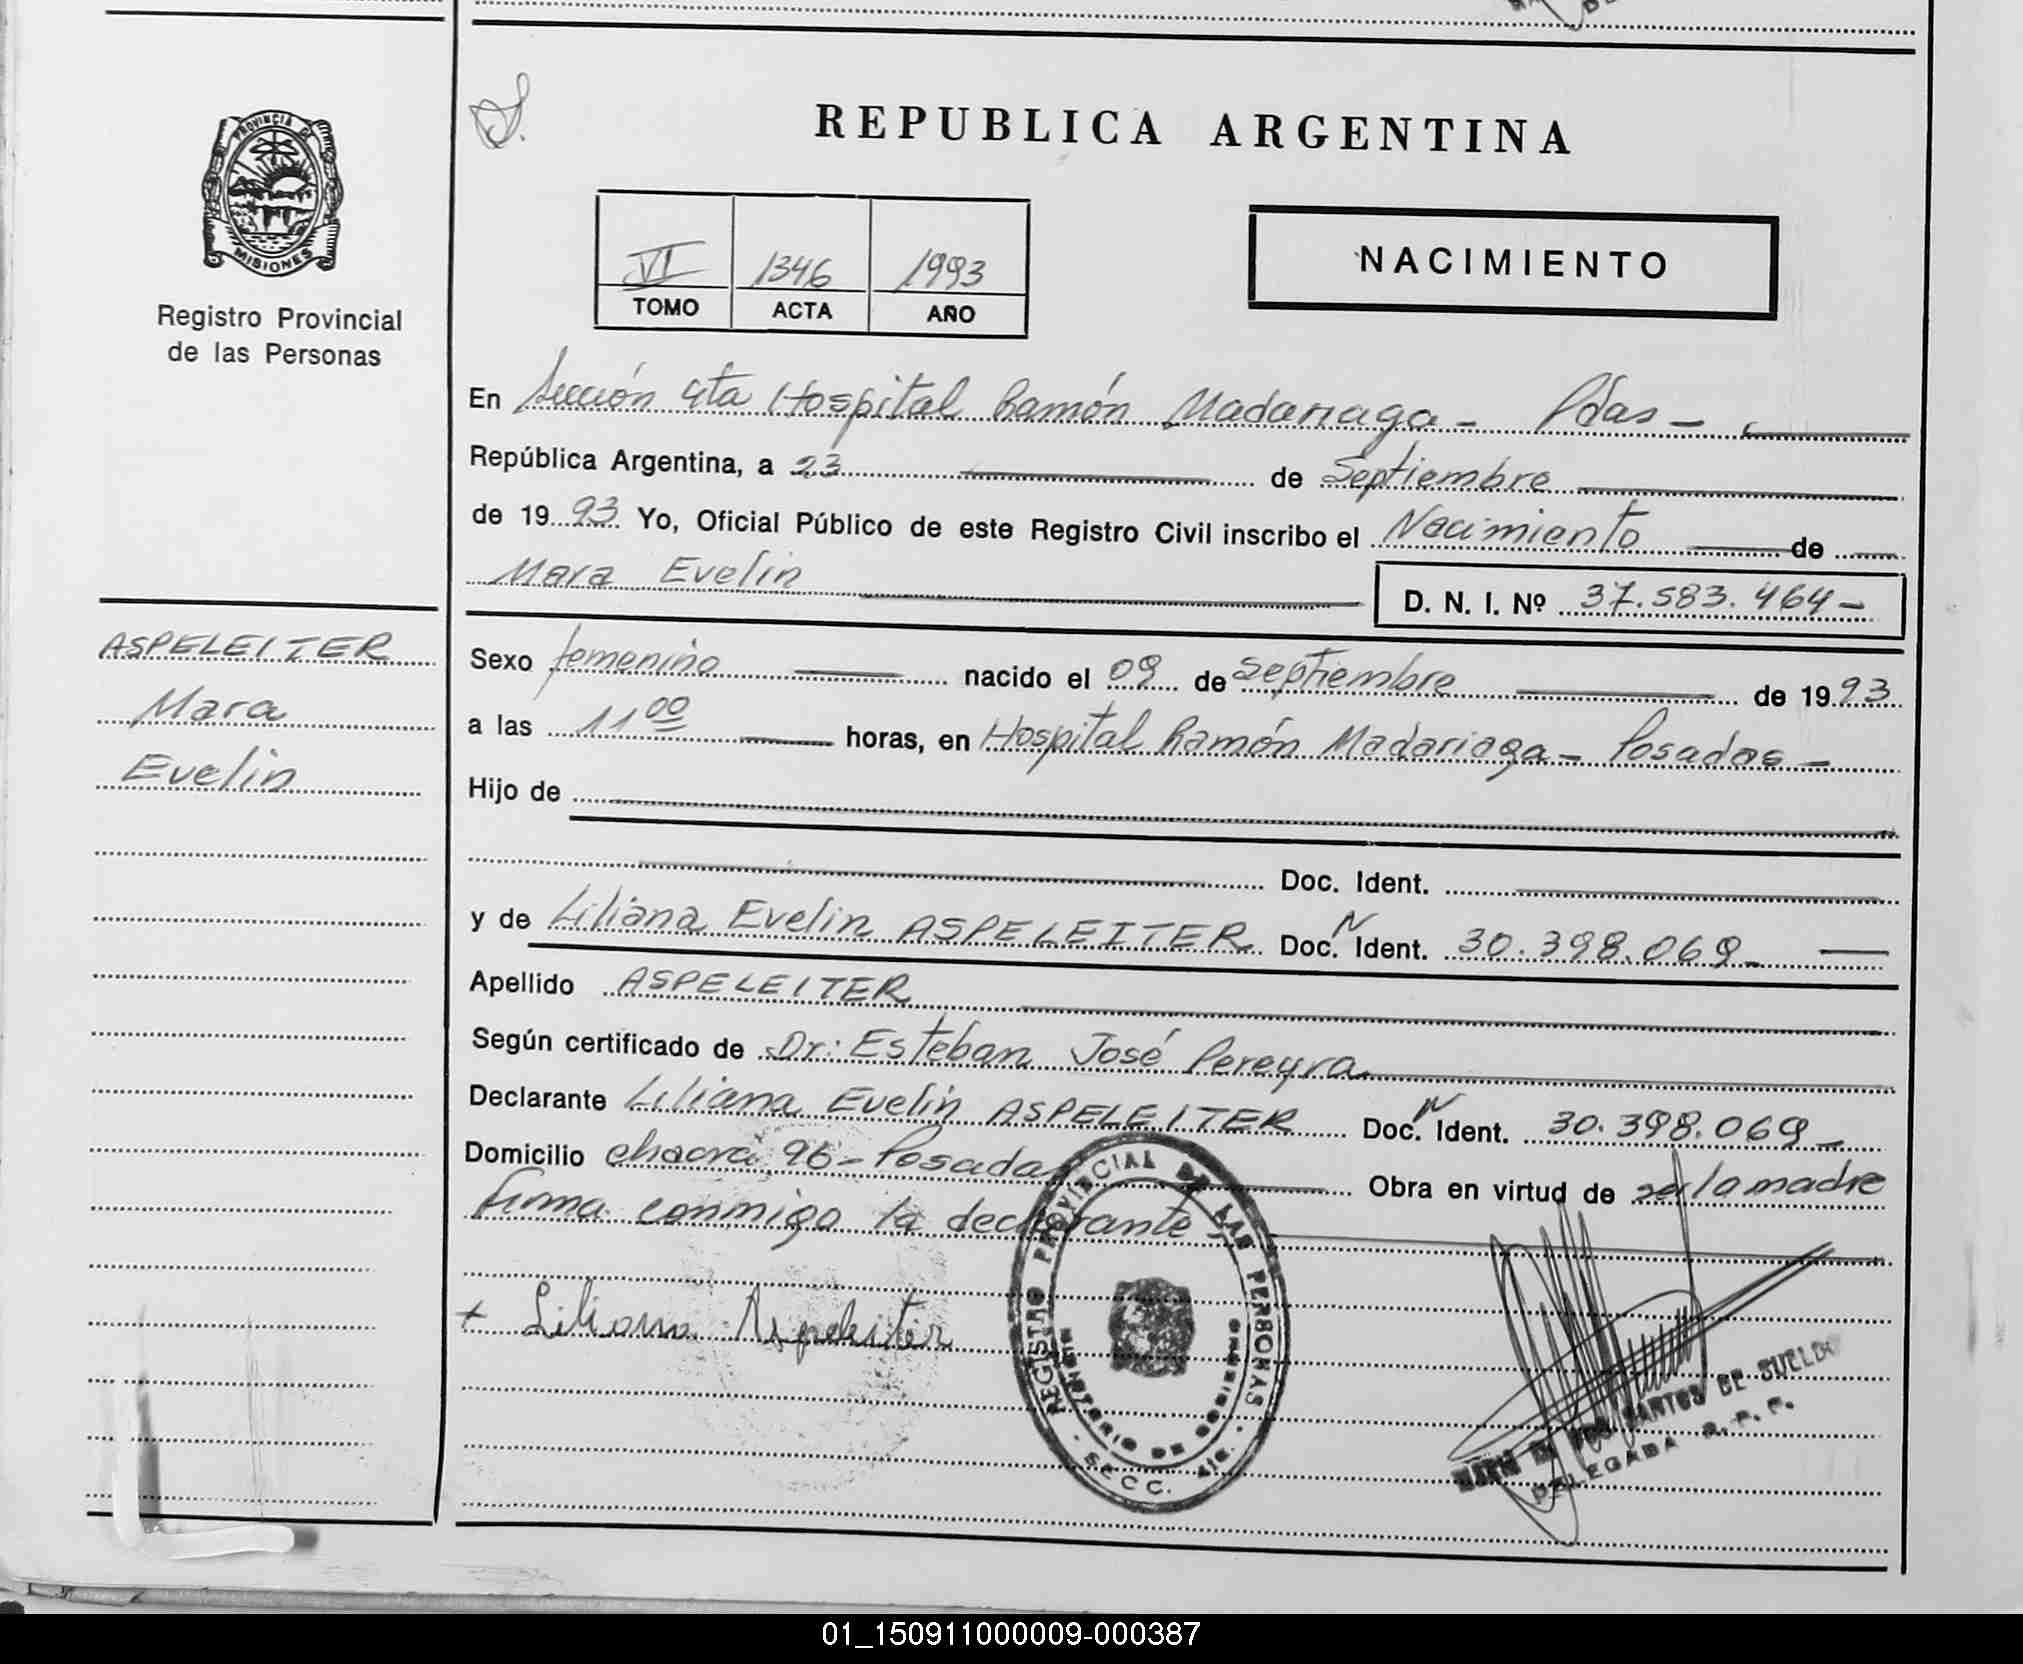 PROVINCIA DE
MISIONES
Registro Provincial
de las Personas
ASPELEITER
Mara
Evelin
REPUBLICA ARGENTINA
VI 1346 1993
TOMO ACTA AÑO
NACIMIENTO
En Sección 4ta Hospital Ramón Madariaga - Pdas -
República Argentina, a 23 de Septiembre
de 1993 Yo, Oficial Público de este Registro Civil inscribo el Nacimiento de
Mara Evelin D. N. I. Nº 37.583.464-
Sexo femenino nacido el 09 de Septiembre de 1993
a las 11 00 horas, en Hospital Ramón Madariaga - Posadas -
Hijo de
Doc. Ident.
y de Liliana Evelin ASPELEITER Doc. N Ident. 30.398.069-
Apellido ASPELEITER
Según certificado de Dr: Esteban José Pereyra
Declarante Liliana Evelin ASPELEITER Doc. N Ident. 30.398.069-
Domicilio chacra 96 - Posadas Obra en virtud de ser la madre
firma conmigo la declarante
+ Liliana Aspeleiter
REGISTRO PROVINCIAL DE LAS PERSONAS
MINISTERIO DE GOBIERNO
SECC. 4ta.
SANTOS DE SUELDO
DELEGADA R. P. P.
01_150911000009-000387